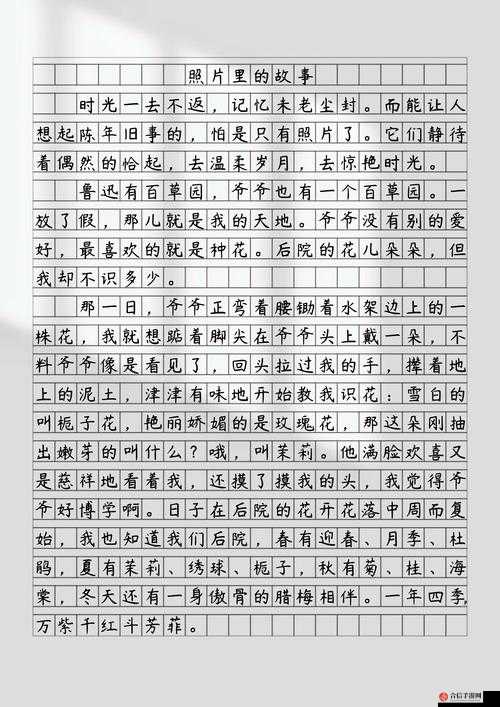 照片里的故事
时光一去不返，记忆未老尘封。而能让人
想起陈年旧事的，怕是只有照片了。它们静待
着偶然的恰起，去温柔岁月，去惊艳时光。
鲁迅有百草园，爷爷也有一个百草园。一
放了假，那儿就是我的天地。爷爷没有别的爱
好，最喜欢的就是种花。后院的花儿朵朵，但
我却不识多少。
那一日，爷爷正弯着腰锄着水架边上的一
株花，我就想踮着脚尖在爷爷头上戴一朵，不
料爷爷像是看见了，回头拉过我的手，撵着地
上的泥土，津津有味地开始教我识花：雪白的
叫栀子花，艳丽娇媚的是玫瑰花，那这朵刚抽
出嫩芽的叫什么？哦，叫茉莉。他满脸欢喜又
是慈祥地看着我，还摸了摸我的头，我觉得爷
爷好博学啊。日子在后院的花开花落中周而复
始，我也知道我们后院，春有迎春、月季、杜
鹃，夏有茉莉、绣球、栀子，秋有菊、桂、海
棠，冬天还有一身傲骨的腊梅相伴。一年四季，
万紫千红斗芳菲。
合信手游网